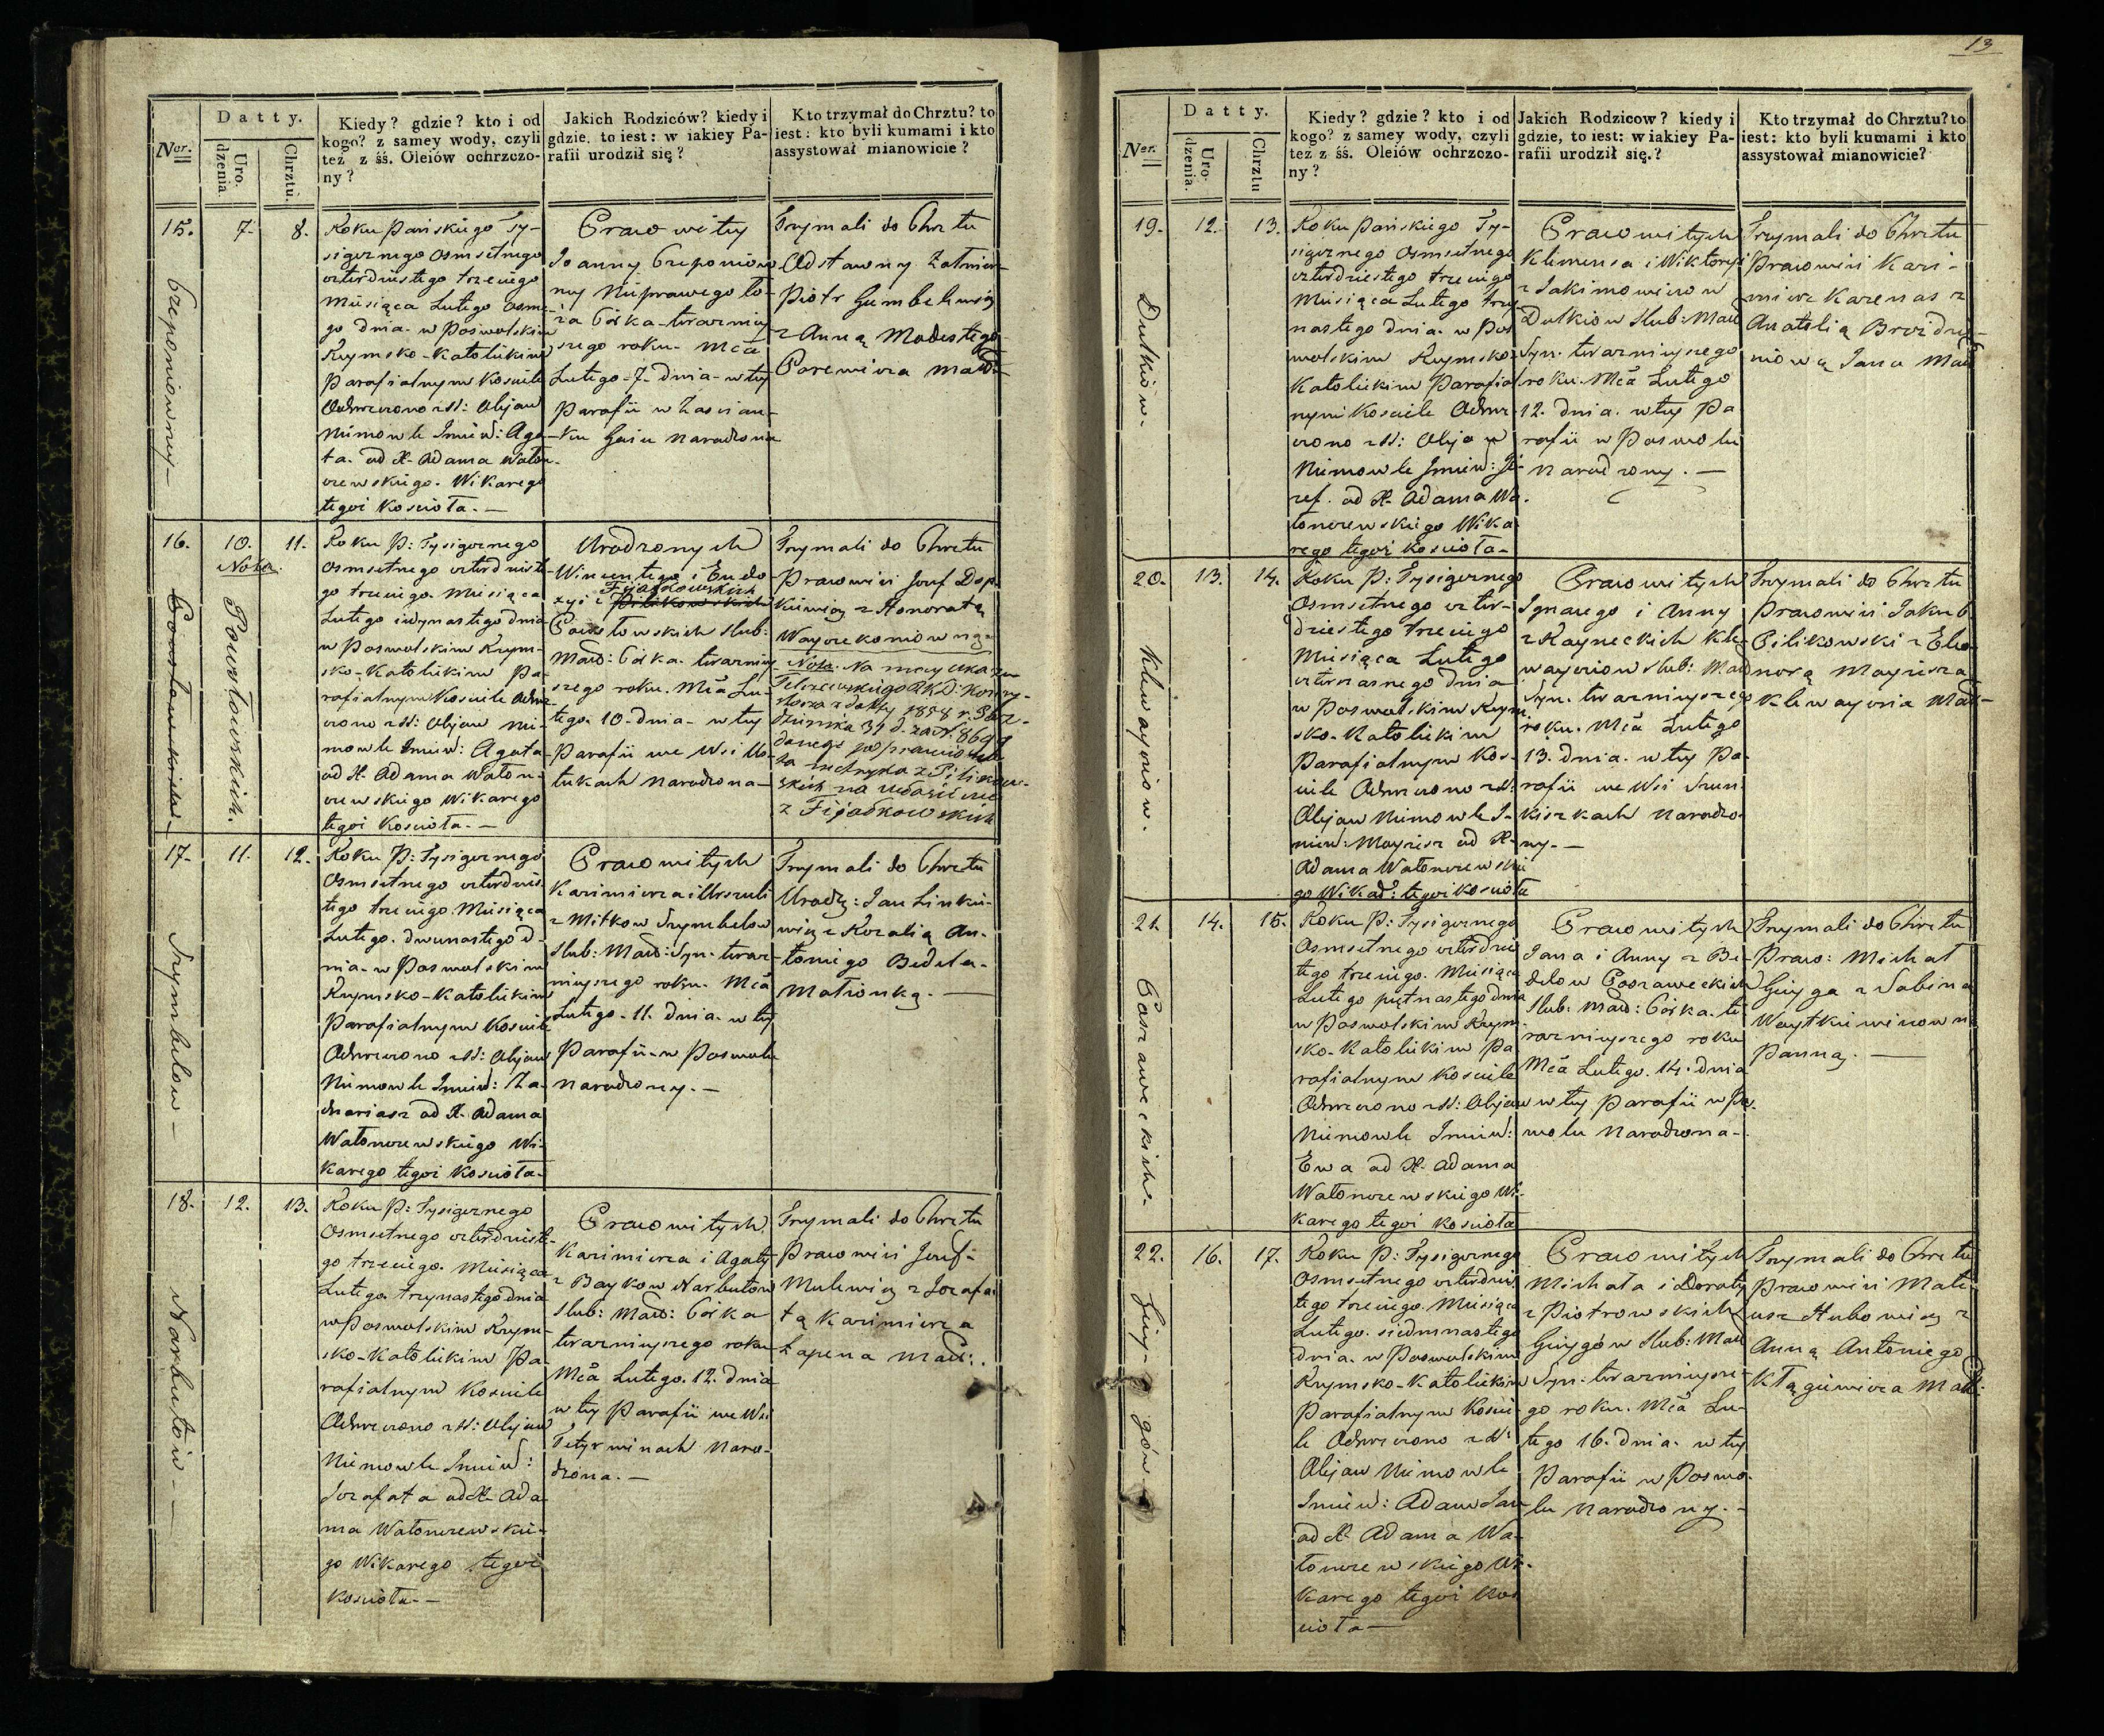 13
Datty.
Ner.
Uro-
dzenia.
Chrztu.
Kiedy? gdzie? kto i od
kogo? z samey wody, czyli
też z śś. Oleiów ochrzczo-
ny?
Jakich Rodziców? kiedy i
gdzie, to iest: w iakiey Pa-
rafii urodził się?
Kto trzymał do Chrztu? to
iest: kto byli kumami i kto
assystował mianowicie?
15.
7.
8.
Roku Pańskiego Ty-
siącznego Osmsetnego
czterdziestego trzeciego
Miesiąca Lutego osme-
go dnia w Poswolskim
Rzymsko-Katolickim
Parafialnym Kosciele
Ochrzczono z SS: Olejow
Niemowle Imieniem: Aga-
ta. od X. Adama Waton-
czewskiego Wikarego
tegoż Koscioła.—
Prawowitey
Joanny Czeponiow-
ney Nieprawego ło-
ża Córka-teraźniey-
szego roku. Mca
Lutego-7-dnia-w tey
Parafii w Zascian-
ku Gaiu Narodzona
Trzymali do Chrztu
Odstawny Żołnierz
Piotr Gumbelewicz
z Anną Modestego
Parewicza Małż:
16.
10.
11.
Nota.
Powstowskich.
Roku P: Tysiącznego
Osmsetnego czterdzieste-
go trzeciego. Miesiąca
Lutego iedynastego dnia
w Poswolskim Rzym-
sko-Katolickim Pa-
rafialnym Kosciele Ochrz-
czono z SS: Olejow Nie-
mowle Imien: Agata
od X. Adama Waton-
czewskiego Wikarego
tegoż Koscioła.—
Urodzonych
Wincentego i Eudo-
xyi z Pilikowskich
Fijałkowskich
Powstowskich Slub:
Małż: Córka. teraźniey-
szego roku. Mca Lu-
tego. 10-dnia-w tey
Parafii we Wsi
tukach Narodzona—
Trzymali do Chrztu
Prawowici Jozef Dap-
kiewicz z Honoratą
Nota. Na mocy Ukazu
Telszewskiego R.K.D. Konsy-
storza z daty 1858 r.
dziernika 31 d. za N. 8699
danego poprawiono
ta metryka z Pilikow-
skich na właściwe
z Fijałkowskich
17.
11.
12.
Szymbelow—
Roku P: Tysiącznego
Osmsetnego czterdzies-
tego trzeciego. Miesiąca
Lutego. dwunastego d-
nia w Poswolskim
Rzymsko-Katolickim
Parafialnym Kosciele
Ochrzczono z SS: Olejow
Niemowle Imien: Za-
chariasz od X. Adama
Watonczewskiego Wi-
karego tegoż Koscioła—
Prawowitych
Kazimierza i Urszuli
z Mitkow Szymbelow
Slub: Małż: Syn. teraź-
nieyszego roku. Mca
Lutego-11. dnia. w tey
Parafii-w Poswolu
Narodzony.—
Trzymali do Chrztu
Urodz: Jan Linkie-
wicz z Rozalią An-
toniego Bedela-
Małżonką.—
18.
12.
13.
Narbutow—
Roku P: Tysiącznego
Osmsetnego czterdzieste-
go trzeciego. Miesiąca
Lutego trzynastego dnia
w Poswolskim Rzym-
sko-Katolickim Pa-
rafialnym Kosciele
Ochrzczono z SS: Olejow
Niemowle Imien:
Jozafata od X. Ada-
ma Watonczewskie-
go Wikarego tegoż
Koscioła.—
Prawowitych
Kazimierza i Agaty
z Baykow Narbutow
Slub: Małż: Córka
teraźnieyszego roku
Mca Lutego. 12. dnia
w tey Parafii we Wsi
Tetyrwinach Naro-
dzona.—
Trzymali do Chrztu
Prawowici Jozef-
Mulewicz z Jozafa-
tą Kazimierza
Łapena Małż:.
Datty.
Ner.
Uro-
dzenia.
Chrztu
Kiedy? gdzie? kto i od
kogo? z samey wody, czyli
też z śś. Oleiów ochrzczo-
ny?
Jakich Rodzicow? kiedy i
gdzie, to iest: w iakiey Pa-
rafii urodził się.?
Kto trzymał do Chrztu? to
iest: kto byli kumami i kto
assystował mianowicie?
19.
12.
13.
Dulkiow.
Roku Pańskiego Ty-
siącznego Osmsetnego
czterdziestego trzeciego
Miesiąca Lutego trzy-
nastego dnia. w Pos-
wolskim Rzymsko-
Katolickim Parafial-
nym Kosciele Ochrz-
czono z SS: Olejow
Niemowle Imien: Jó-
zef. od X. Adama Wa-
tonczewskiego Wika-
rego tegoż Koscioła—
Prawowitych
Klemensa i Wiktoryi
z Jakimowiczow
Dulkiow Slub: Małż
Syn. teraźnieyszego
roku. Mca Lutego
12. dnia. w tey Pa
rafii w Poswolu
Narodzony.—
Trzymali do Chrztu
Prawowici Kazi-
mierz Karenas z
Anatolią
niową Jana Małż
20.
13.
14.
Klewayniow.
Roku P: Tysiącznego
Osmsetnego czter-
dziestego trzeciego
Miesiąca Lutego
czternasnego dnia
w Poswolskim Rzym-
sko-Katolickim
Parafialnym Kos-
ciele Ochrzczono z SS:
Olejow Niemowle I-
mien: Mayzesz od X.
Adama Watonczewskie-
go Wikar: tegoż Koscioła
Prawowitych
Ignacego i Anny
z Rayneckich Kle-
Slub: Małż
Syn. teraźnieyszego
roku. Mca Lutego
13. dnia. w tey Pa-
rafii we Wsi Szun-
kiszkach Narodzo-
ny.—
Trzymali do Chrztu
Prawowici Jakub
Pilikowski z Eleo-
norą Mayzesza
Małż—
21.
14.
15.
Paszaweckich.
Roku P: Tysiącznego
Osmsetnego czterdzies-
tego trzeciego. Miesiąca
Lutego piętnastego dnia
w Poswolskim Rzym-
sko-Katolickim Pa
rafialnym Kosciele
Ochrzczono z SS: Olejow
Niemowle Imien:
Ewa od X. Adama
Watonczewskiego Wi-
karego tegoż Koscioła
Prawowitych
Jana i Anny z Be-
delow Poszaweckich
Slub: Małż: Córka. te-
raźnieyszego roku
Mca Lutego. 14. dnia
w tey Parafii w Pos-
wolu Narodzona—
Trzymali do Chrztu
Praw: Michał
Giryga z Sabiną
Woytkiewiczown
Panną.—
22.
16.
17.
Giry-gów—
Roku P: Tysiącznego
Osmsetnego czterdzies-
tego trzeciego. Miesiąca
Lutego. siedmnastego
dnia. w Poswolskim
Rzymsko-Katolickim
Parafialnym Koscie-
le Ochrzczono z SS:
Olejow Niemowle
Imien: Adam Jan
od X. Adama Wa-
tonczewskiego Wi-
karego tegoż Kos
cioła—
Prawowitych
Michała i Doroty
z Piotrowskich
Girygów Slub: Małż
Syn. teraźnieysze-
go roku. Mca Lu-
tego 16. dnia. w tey
Parafii w Poswo-
lu Narodzony.—
Trzymali do Chrztu
Prawowici Mate-
usz Hubowicz z
Anną Antoniego
Małż: